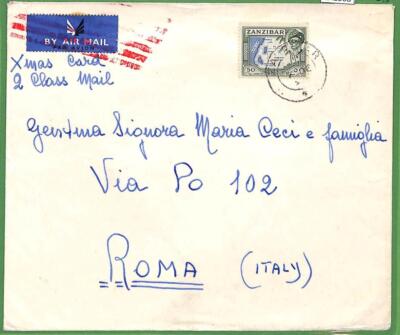 BY AIR MAIL
PAR AVION
Xmas Card
2 Class Mail
ZANZIBAR
50
Gent.ma Signora Maria Ceci e famiglia
Via Po 102
ROMA (ITALY)